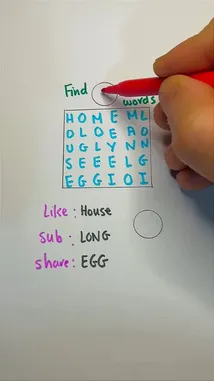 Find words
H O M E M L
O L O E A O
U G L Y N N
S E E E L G
E G G I O I
Like : House
Sub : LONG
share : EGG